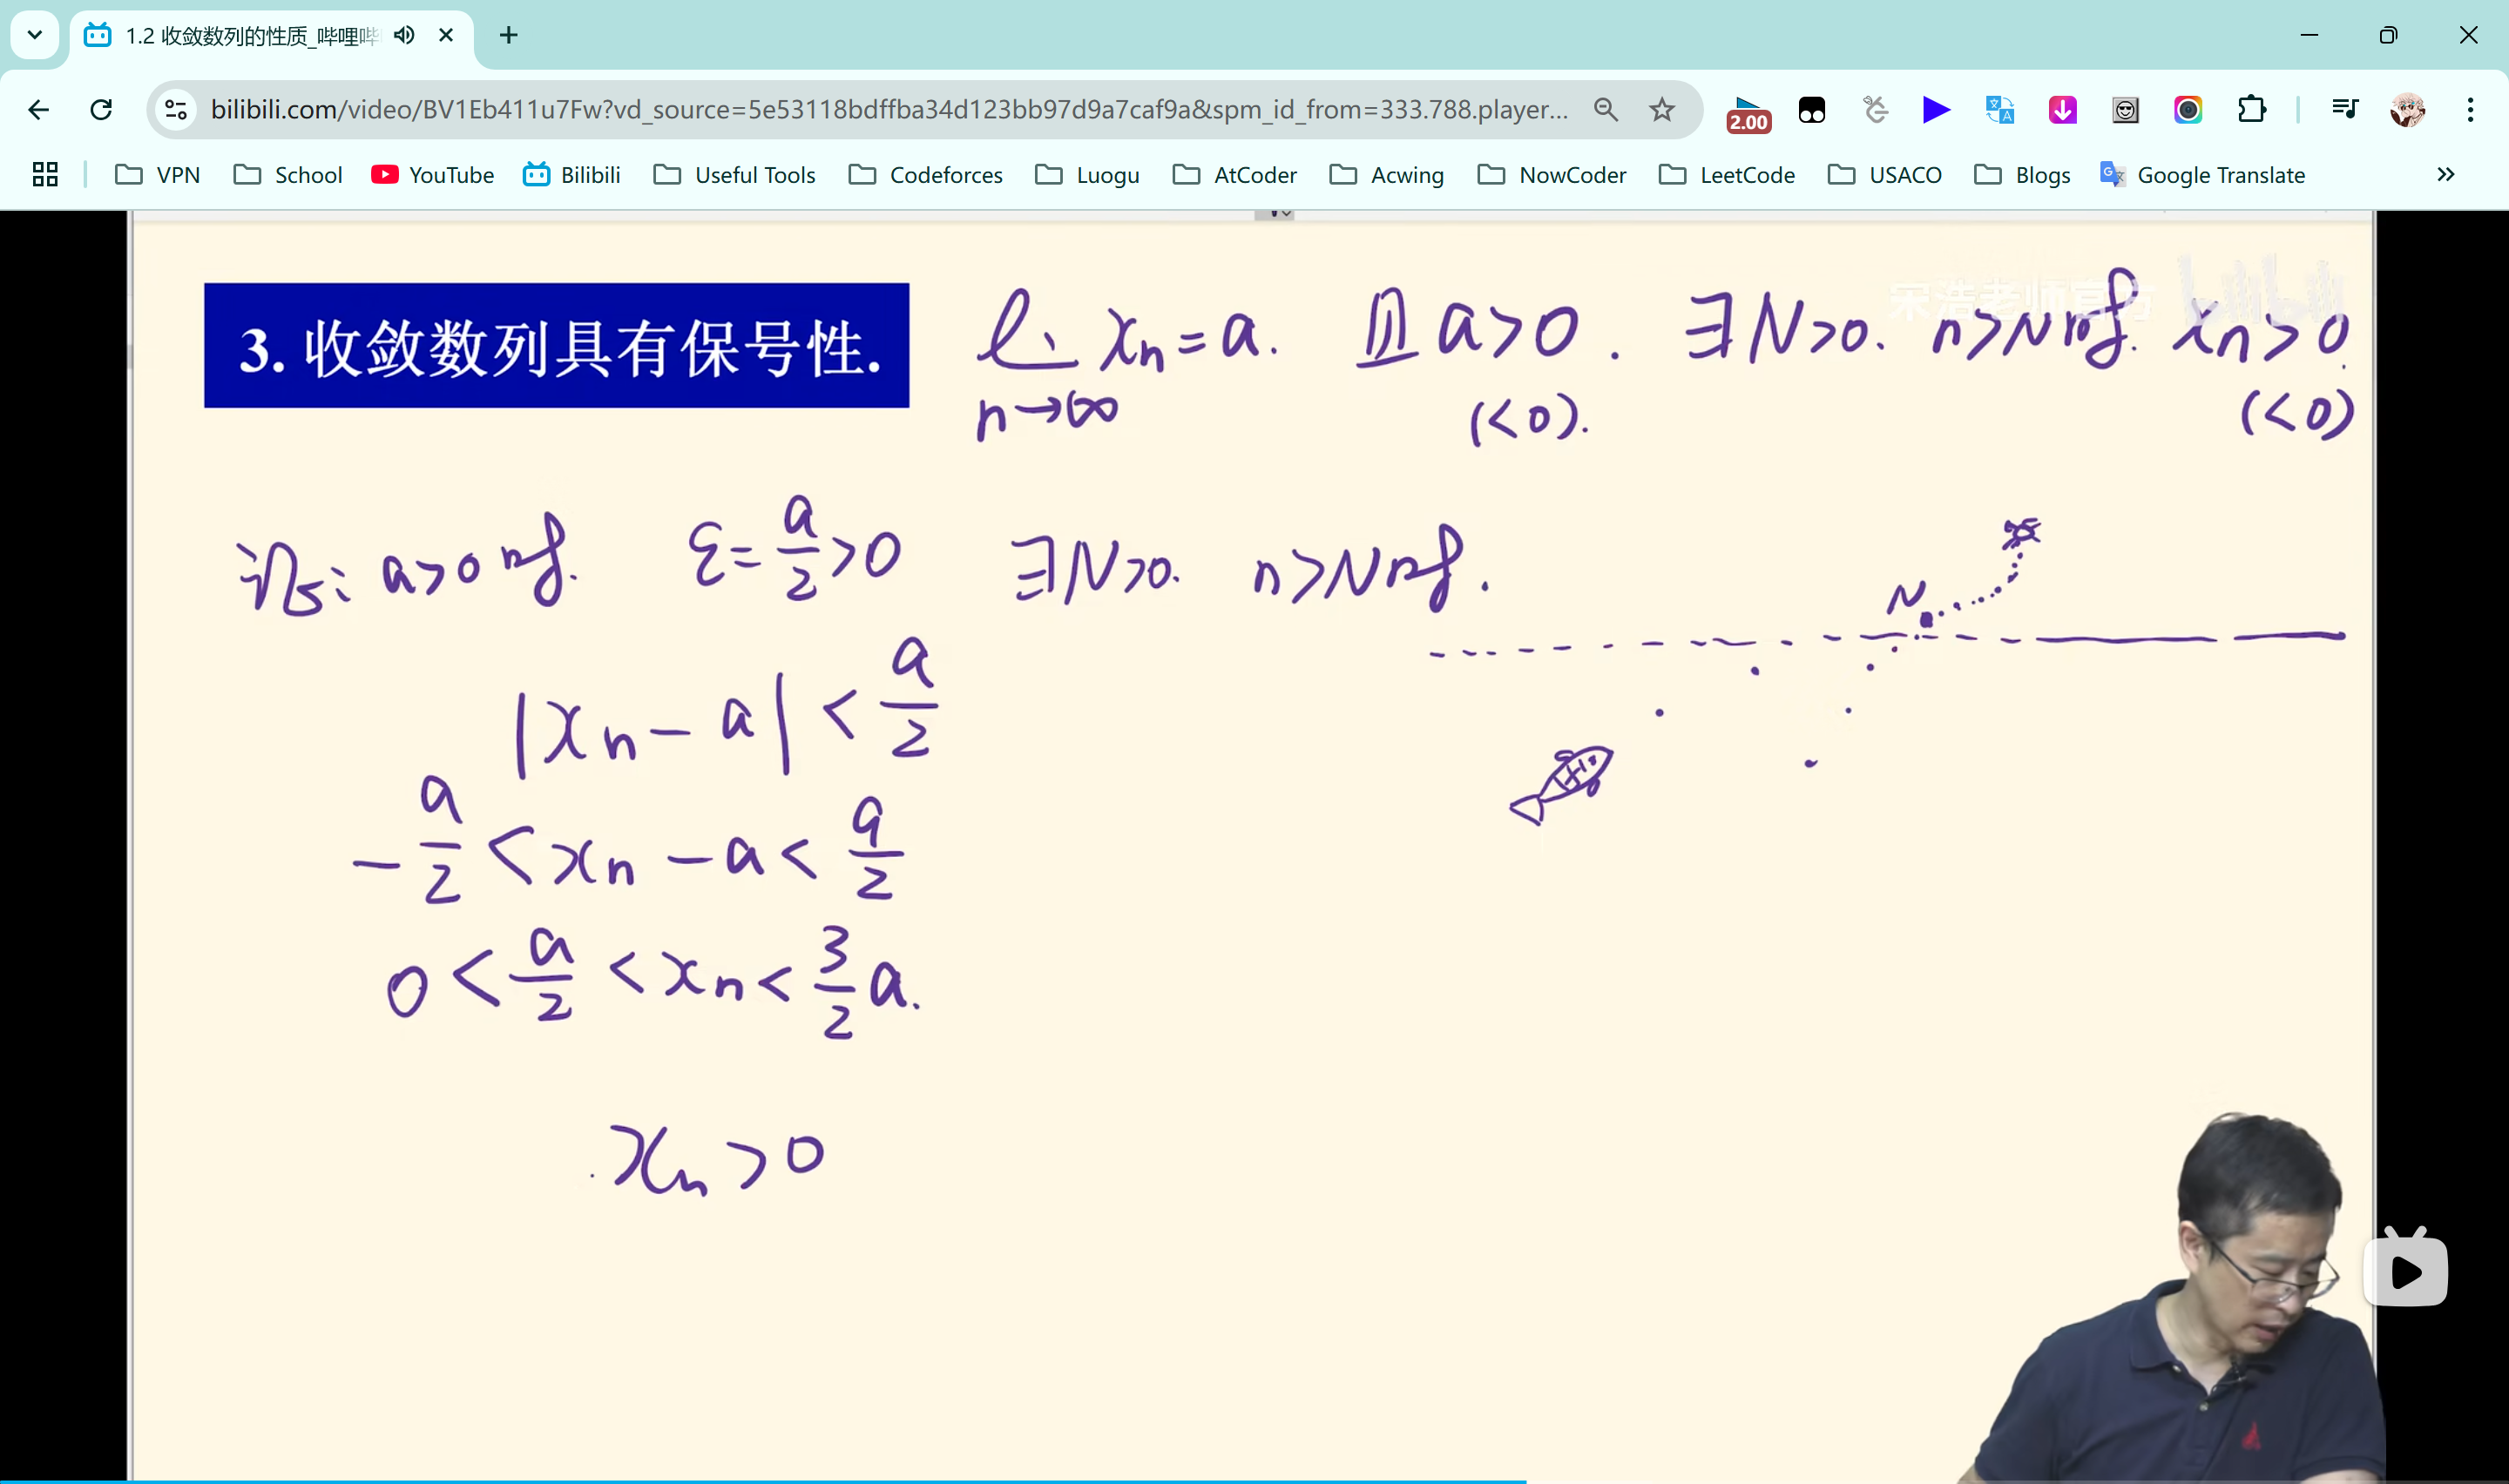 1.2 收敛数列的性质_哔哩哔
bilibili.com/video/BV1Eb411u7Fw?vd_source=5e53118bdffba34d123bb97d9a7caf9a&spm_id_from=333.788.player...
2.00
VPN School YouTube Bilibili Useful Tools Codeforces Luogu AtCoder Acwing NowCoder LeetCode USACO Blogs Google Translate
宋浩老师官方 bilibili
3. 收敛数列具有保号性. lim xn=a. 且 a>0. ∃N>0. n>N时. xn>0.
n→∞ (<0). (<0)
证: a>0时. ε=a/2>0 ∃N>0. n>N时.
N
|xn-a|<a/2
-a/2<xn-a<a/2
0<a/2<xn<3/2a.
xn>0